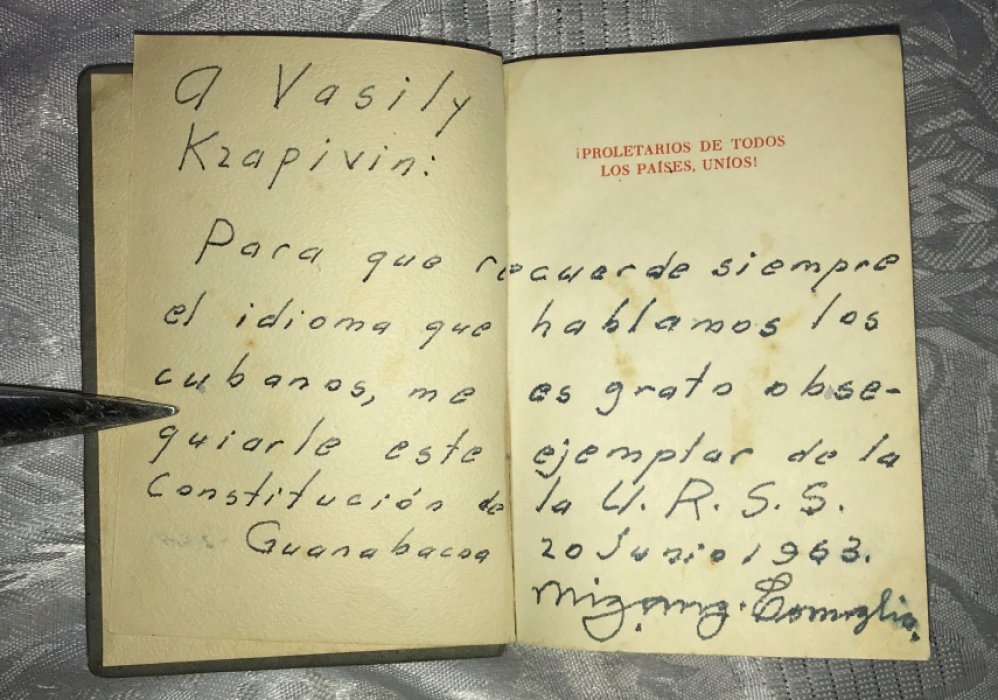 A Vasily
Krapivin:
¡PROLETARIOS DE TODOS
LOS PAÍSES, UNÍOS!
Para que recuerde siempre
el idioma que hablamos los
cubanos, me es grato obse-
quiarle este ejemplar de la
Constitución de la U.R.S.S.
Guanabacoa 20 Junio 1963.